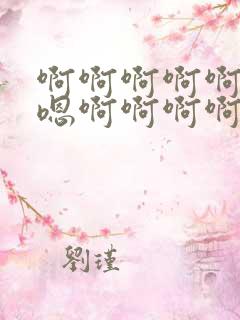 啊啊啊啊啊
嗯啊啊啊啊
劉瑾